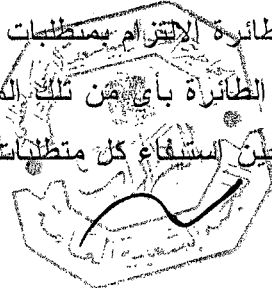 طائرة الالتزام بمتطلبات
الطائرة بأي من تلك
حين استيفاء كل متطلبات